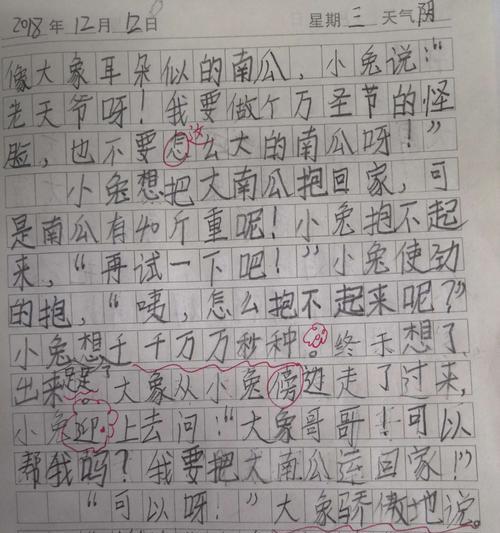 2018年12月12日 星期三 天气阴
像大象耳朵似的南瓜，小兔说："
老天爷呀！我要做个万圣节的怪
这
脸，也不要怎么大的南瓜呀！"
小兔想把大南瓜抱回家，可
是南瓜有40斤重呢！小兔抱不起
来，"再试一下吧！"小兔使劲
的抱，"咦，怎么抱不起来呢？"
小兔想千千万万秒种。终于想了
出来 大象从小兔傍边走了过来，
小兔迎上去问："大象哥哥！可以
帮我吗？我要把大南瓜运回家！"
"可以呀！"大象骄傲地说。